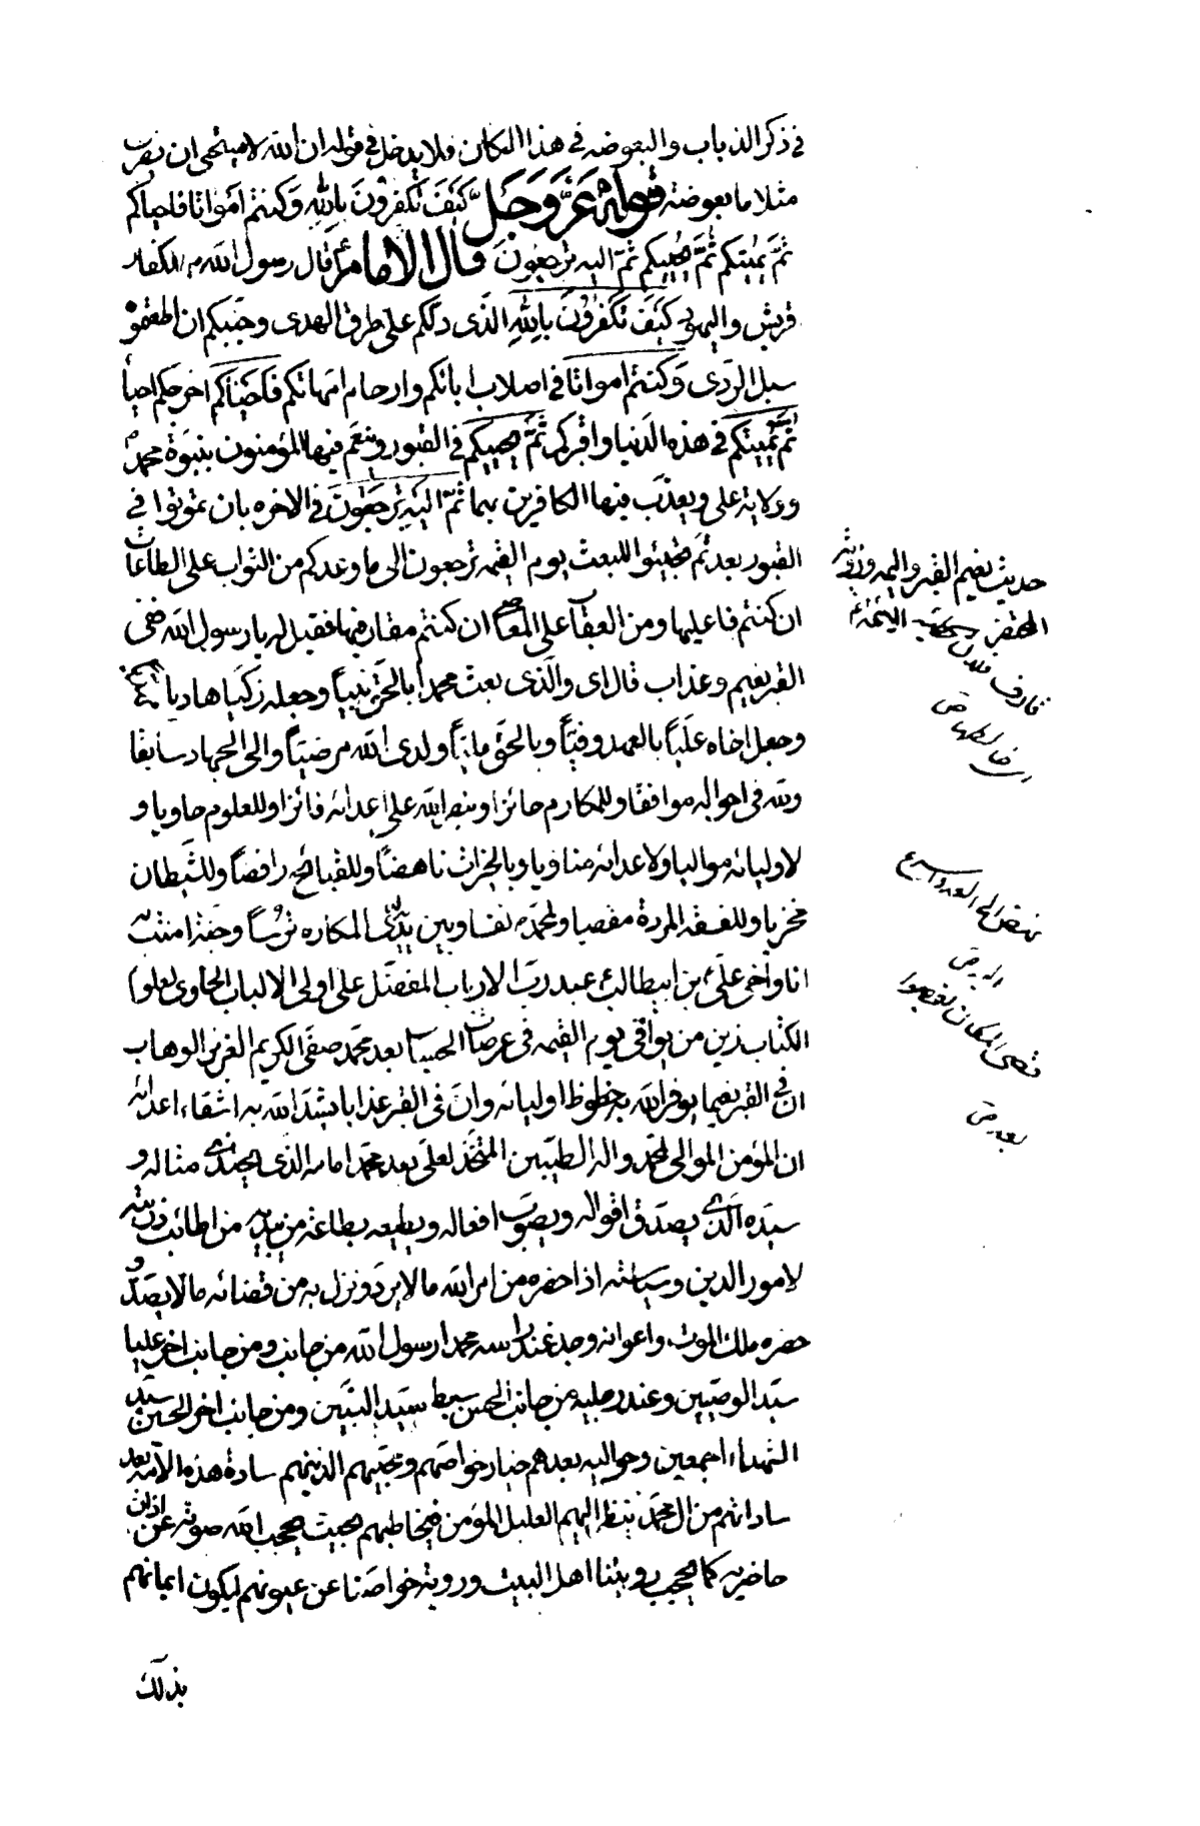 في ذكر الذباب والبعوضة في هذا المكان ولا يدخل في قوله ان الله لا يستحيى ان يضرب
مثلا ما بعوضة قوله عَزَّ وَجَلَّ كَيْفَ تَكْفُرُونَ بِاللّهِ وَكنتم اَمْواتا فاحياكم
ثُمَّ يُميتكم ثُمَّ يُحْييكم ثمّ اليه ترجعون قال الامام ع قال رسول الله ص لكفار
قريش واليهود كَيْفَ تَكْفُرُونَ بِاللّهِ الَّذى دلّكم على طرق الهدى وجنّبكم ان اطعتموه
سبل الرّدى وَكنتم امواتا في اصلاب ابائكم وارحام امّهاتكم فَاَحْياكم اخرجكم احياءً
ثُمَّ يُميتكم في هذه الدنيا واقبركم ثُمَّ يحييكم في القبور وينعّم فيها المؤمنون بنبوّة محمد ص
وولاية على ويعذّب فيها الكافرين بهما ثُمَّ اليْهِ تُرجَعُونَ في الاخره بان تموتوا في
القبور بعد ثمّ تحيوا للبعث يوم القيمه ترجعون الى ما وعدكم من الثواب على الطاعات
ان كنتم فاعليها ومن العقاب على المعاصى ان كنتم مقارفيها فقيل له يا رسول الله ففى
القبر نعيم وعذاب قال اى والّذى بعث محمدا بالحقّ نبيّاً وجعله زكيا هاديا مهديا
وجعل اخاه عليّاً بالعهد وفيّاً وبالحقّ مليّاً ولدى الله مرضيّاً والى الجهاد سابقا
ولله في احواله موافقا وللمكارم حائزا وبنصر الله على اعدائه فائزا وللعلوم حاويا و
لاوليائه مواليا ولاعدائه مناويا وبالخيرات ناهضاً وللقبائح رافضاً وللشيطان
مخزيا وللفسقه المردة مقصيا ولمحمد ص نفسا وبين يديه لدى المكاره ترساً وجنة امنت به
انا واخى علىّ بن ابيطالب ع عبد ربّ الارباب المفضّل على اولى الالباب الحاوى لعلوم
الكتاب زين من يوافى يوم القيمه في عرصات الحساب بعد محمّد صفىّ الكريم العزيز الوهاب
ان في القبر نعيما يوفر الله به حظوظ اوليائه وانّ في القبر عذابا يشدّد الله به اشقاء اعدائه
ان المؤمن الموالى لمحمّد واله الطيّبين المتّخذ لعلىّ بعد محمّد امامه الذى يحتذى مثاله و
سيّده الّذى يصدّق اقواله ويصوّب افعاله ويطيعه بطاعة من يندبه من اطائب ذرّيته
لامور الدين وسياسته اذا حضره من امر الله ما لا يردّ ونزل به من قضائه ما لا يصدّ و
حضره ملك الموت واعوانه وجد عند راسه محمدا رسول الله من جانب ومن جانب اخر عليا
سيّد الوصيّين وعند رجليه من جانب الحسن سبط سيّد النبيّين ومن جانب اخر الحسين سيّد
الشهداء اجمعين وحواليه بعدهم خيار خواصّهم ومحبّيهم الذينهم سادة هذه الامّة بعد
ساداتهم من آل محمّد ينظر اليهم العليل المؤمن فيخاطبهم بحيث يحجب الله صوته عن اذان
حاضريه كما يحجب رؤيتنا اهل البيت ورؤية خواصّنا عن عيونهم ليكون ايمانهم
بذلك
حديث نعيم القبر
قارف فلان
اى خالطها ص
نهض الى العدو اسرع
اليه ص
قصى المكان يقصو
بعد ص